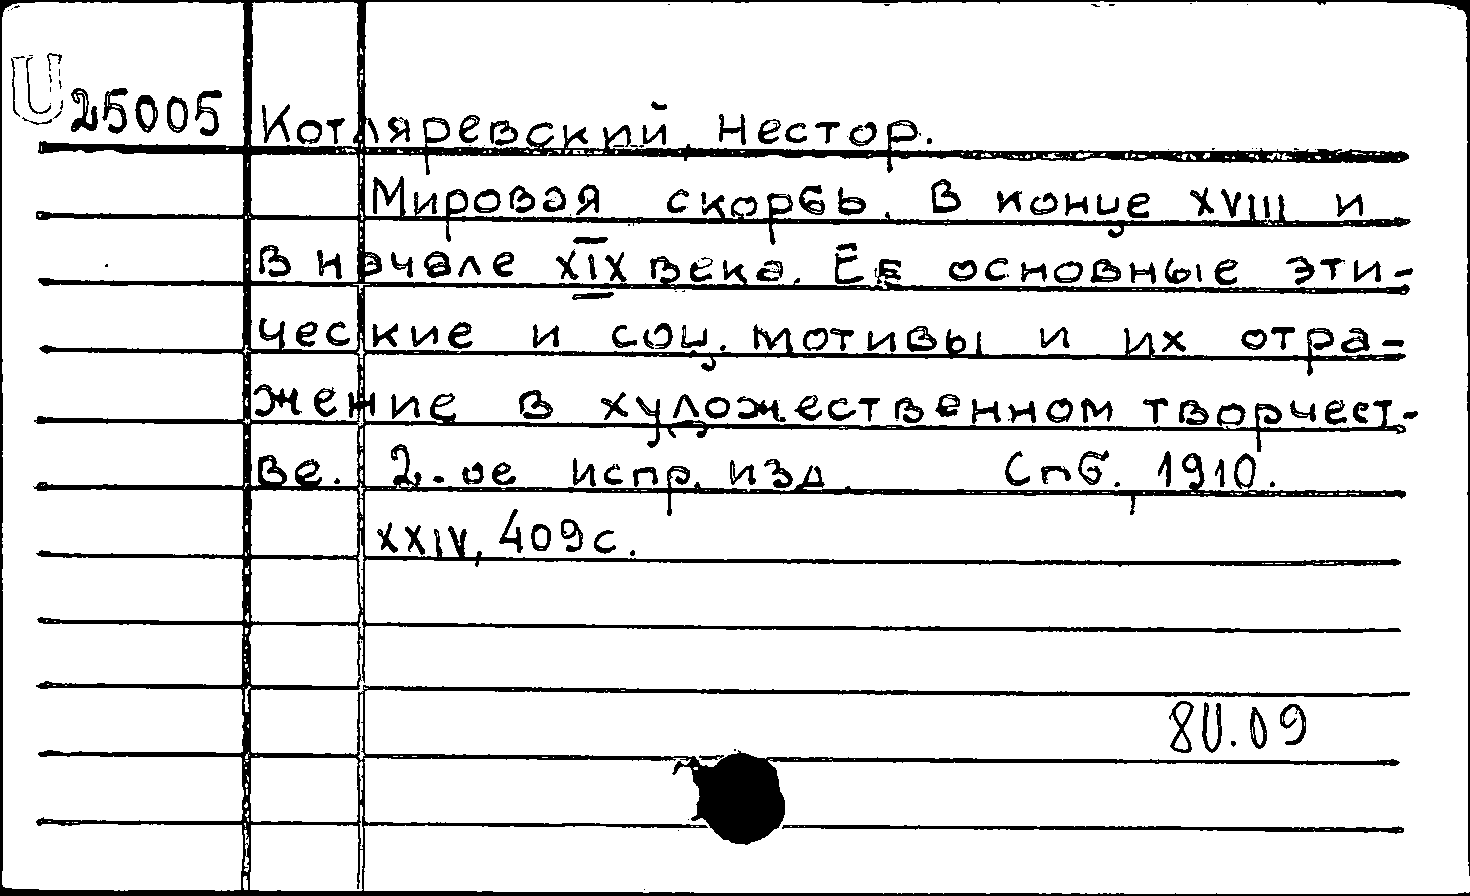 U 25005 Котляревский, Нестор.
Мировая скорбь. В конце XVIII и
в начале XIX века. Ее основные эти-
ческие и соц. мотивы и их отра-
жение в художественном творчест-
ве. 2-ое испр. изд. Спб., 1910.
XXIV, 409 с.
8U.09